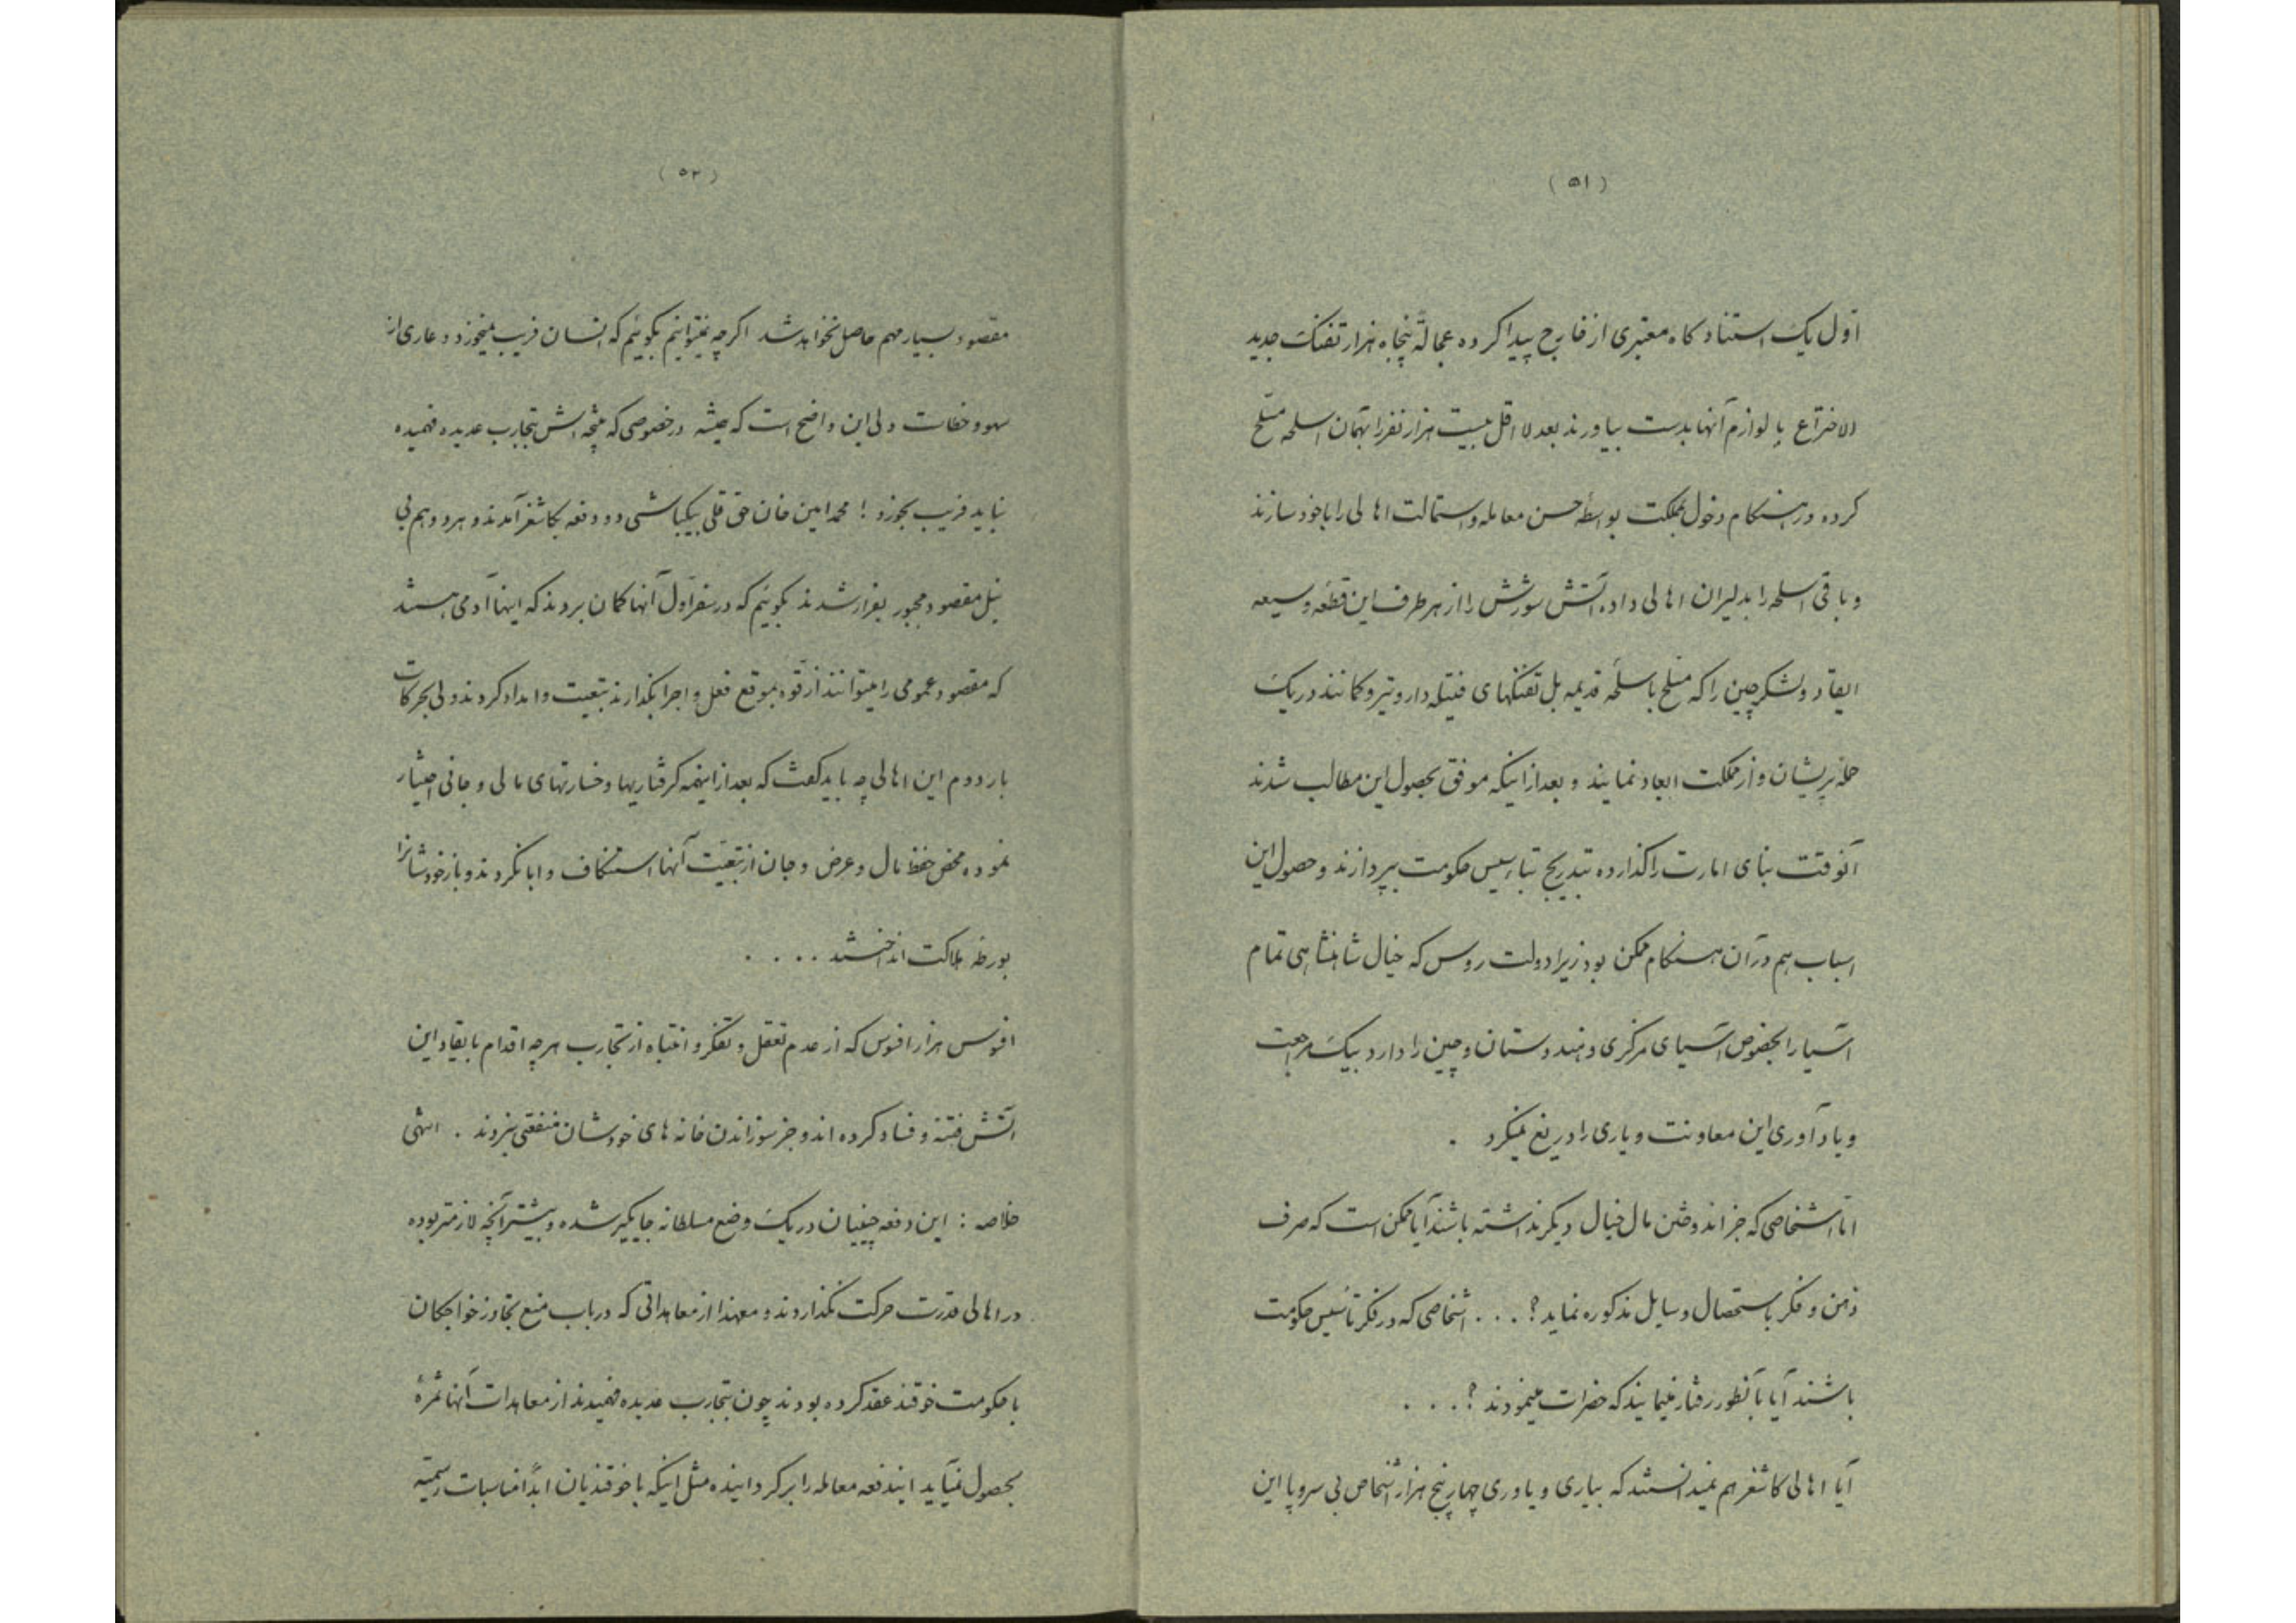 (۵۱)
اوّل یک استنادکاه معتبری از خارج پیدا کرده عجالةً پنجاه هزار تفنک جدید
الاختراع با لوازم آنها بدست بیاورند بعد لااقل بیست هزار نفر را بهمان اسلحه مسلّح
کرده در هنکام دخول بمملکت بواسطه حسن معامله و استمالت اهالی را با خود سازند
و باقی اسلحه را بدلیران اهالی داده آتش سورش را از هر طرف این قطعه وسیعه
ایقاد و لشکر چین را که مسلّح باسلحهٔ قدیمه بل تفنکهای فتیله دار و تیر و کمانند در یک
حمله پریشان و از مملکت ابعاد نمایند و بعد از اینکه موفق بحصول این مطالب شدند
آنوقت بنای امارت را کذارده بتدریج بتاسیس حکومت بپردازند و حصول این
اسباب هم در آن هنکام ممکن بود زیرا دولت روس که خیال شاهنشاهی تمام
آسیا را بخصوص آسیای مرکزی و هندوستان و چین را دارد بیک مراجعت
و یاد آوری این معاونت و یاری را دریغ نمیکرد .
امّا اشخاصی که جز اندوختن مال خیال دیکر نداشته باشند آیا ممکن است که صرف
ذهن و فکر باستحصال وسایل مذکوره نماید ؟ . . . اشخاصی که در فکر تأسیس حکومت
باشند آیا بآنطور رفتار مینمایند که حضرات مینمودند ؟ . . .
آیا اهالی کاشغر هم نمیدانستند که بیاری و یاوری چهار پنج هزار اشخاص بی سر و پا این
(۵۲)
مقصود بسیار مهم حاصل نخواهد شد اکرچه نمیتوانیم بکوئیم که انسان فریب نمیخورد و عاری از
سهو و خطاست ولی این واضح است که همیشه در خصوصی که نتیجه اش بتجارب عدیده فهمیده
نباید فریب بخورد ! محمد امین خان حق قلی بیکباشی دو دفعه بکاشغر آمدند و هر دو هم بی
نیل مقصود مجبور بفرار شدند بکوئیم که در سفر اوّل آنها کمان بردند که اینها آدمی هستند
که مقصود عمومی را میتوانند از قوه بموقع فعل و اجرا بکذارند تبعیت و امداد کردند ولی بحرکات
بار دوم این اهالی چه باید کفت که بعد از اینهمه کرفتاریها و خسارتهای مالی و جانی اختیار
نموده محض حفظ مال و عرض و جان از تبعیّت آنها استنکاف و ابا نکردند و باز خودشانرا
بورطه هلاکت انداختند . . . .
افسوس هزار افسوس که از عدم تعقل و تفکر و انتباه از تجارب هر چه اقدام بایقاد این
آتش فتنه و فساد کرده اند و جز سوزاندن خانه های خودشان منفعتی نبردند . انتهی
خلاصه : این دفعه چینیان در یک وضع مسلطانه جایکیر شده و بیشتر آنچه لازمتر بوده
در اهالی قدرت حرکت نکذاردند و معهذا از معاهداتی که در باب منع تجاوز خواجکان
با حکومت خوقند عقد کرده بودند چون بتجارب عدیده فهمیدند از معاهدات آنها ثمرهٔ
بحصول نمیآید ایندفعه معامله را برکردانیده مثل اینکه با خوقندیان ابداً مناسبات رسمیّه